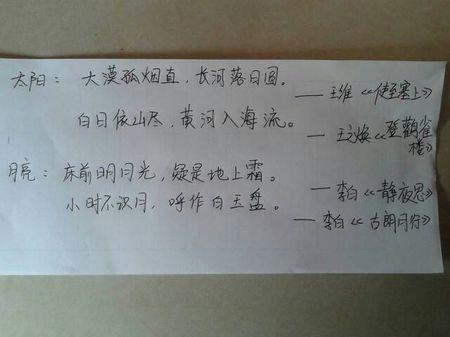 太阳： 大漠孤烟直，长河落日圆。
——王维《使至塞上》
白日依山尽，黄河入海流。
——王之焕《登鹳雀楼》
月亮： 床前明月光，疑是地上霜。
——李白《静夜思》
小时不识月，呼作白玉盘。
——李白《古朗月行》